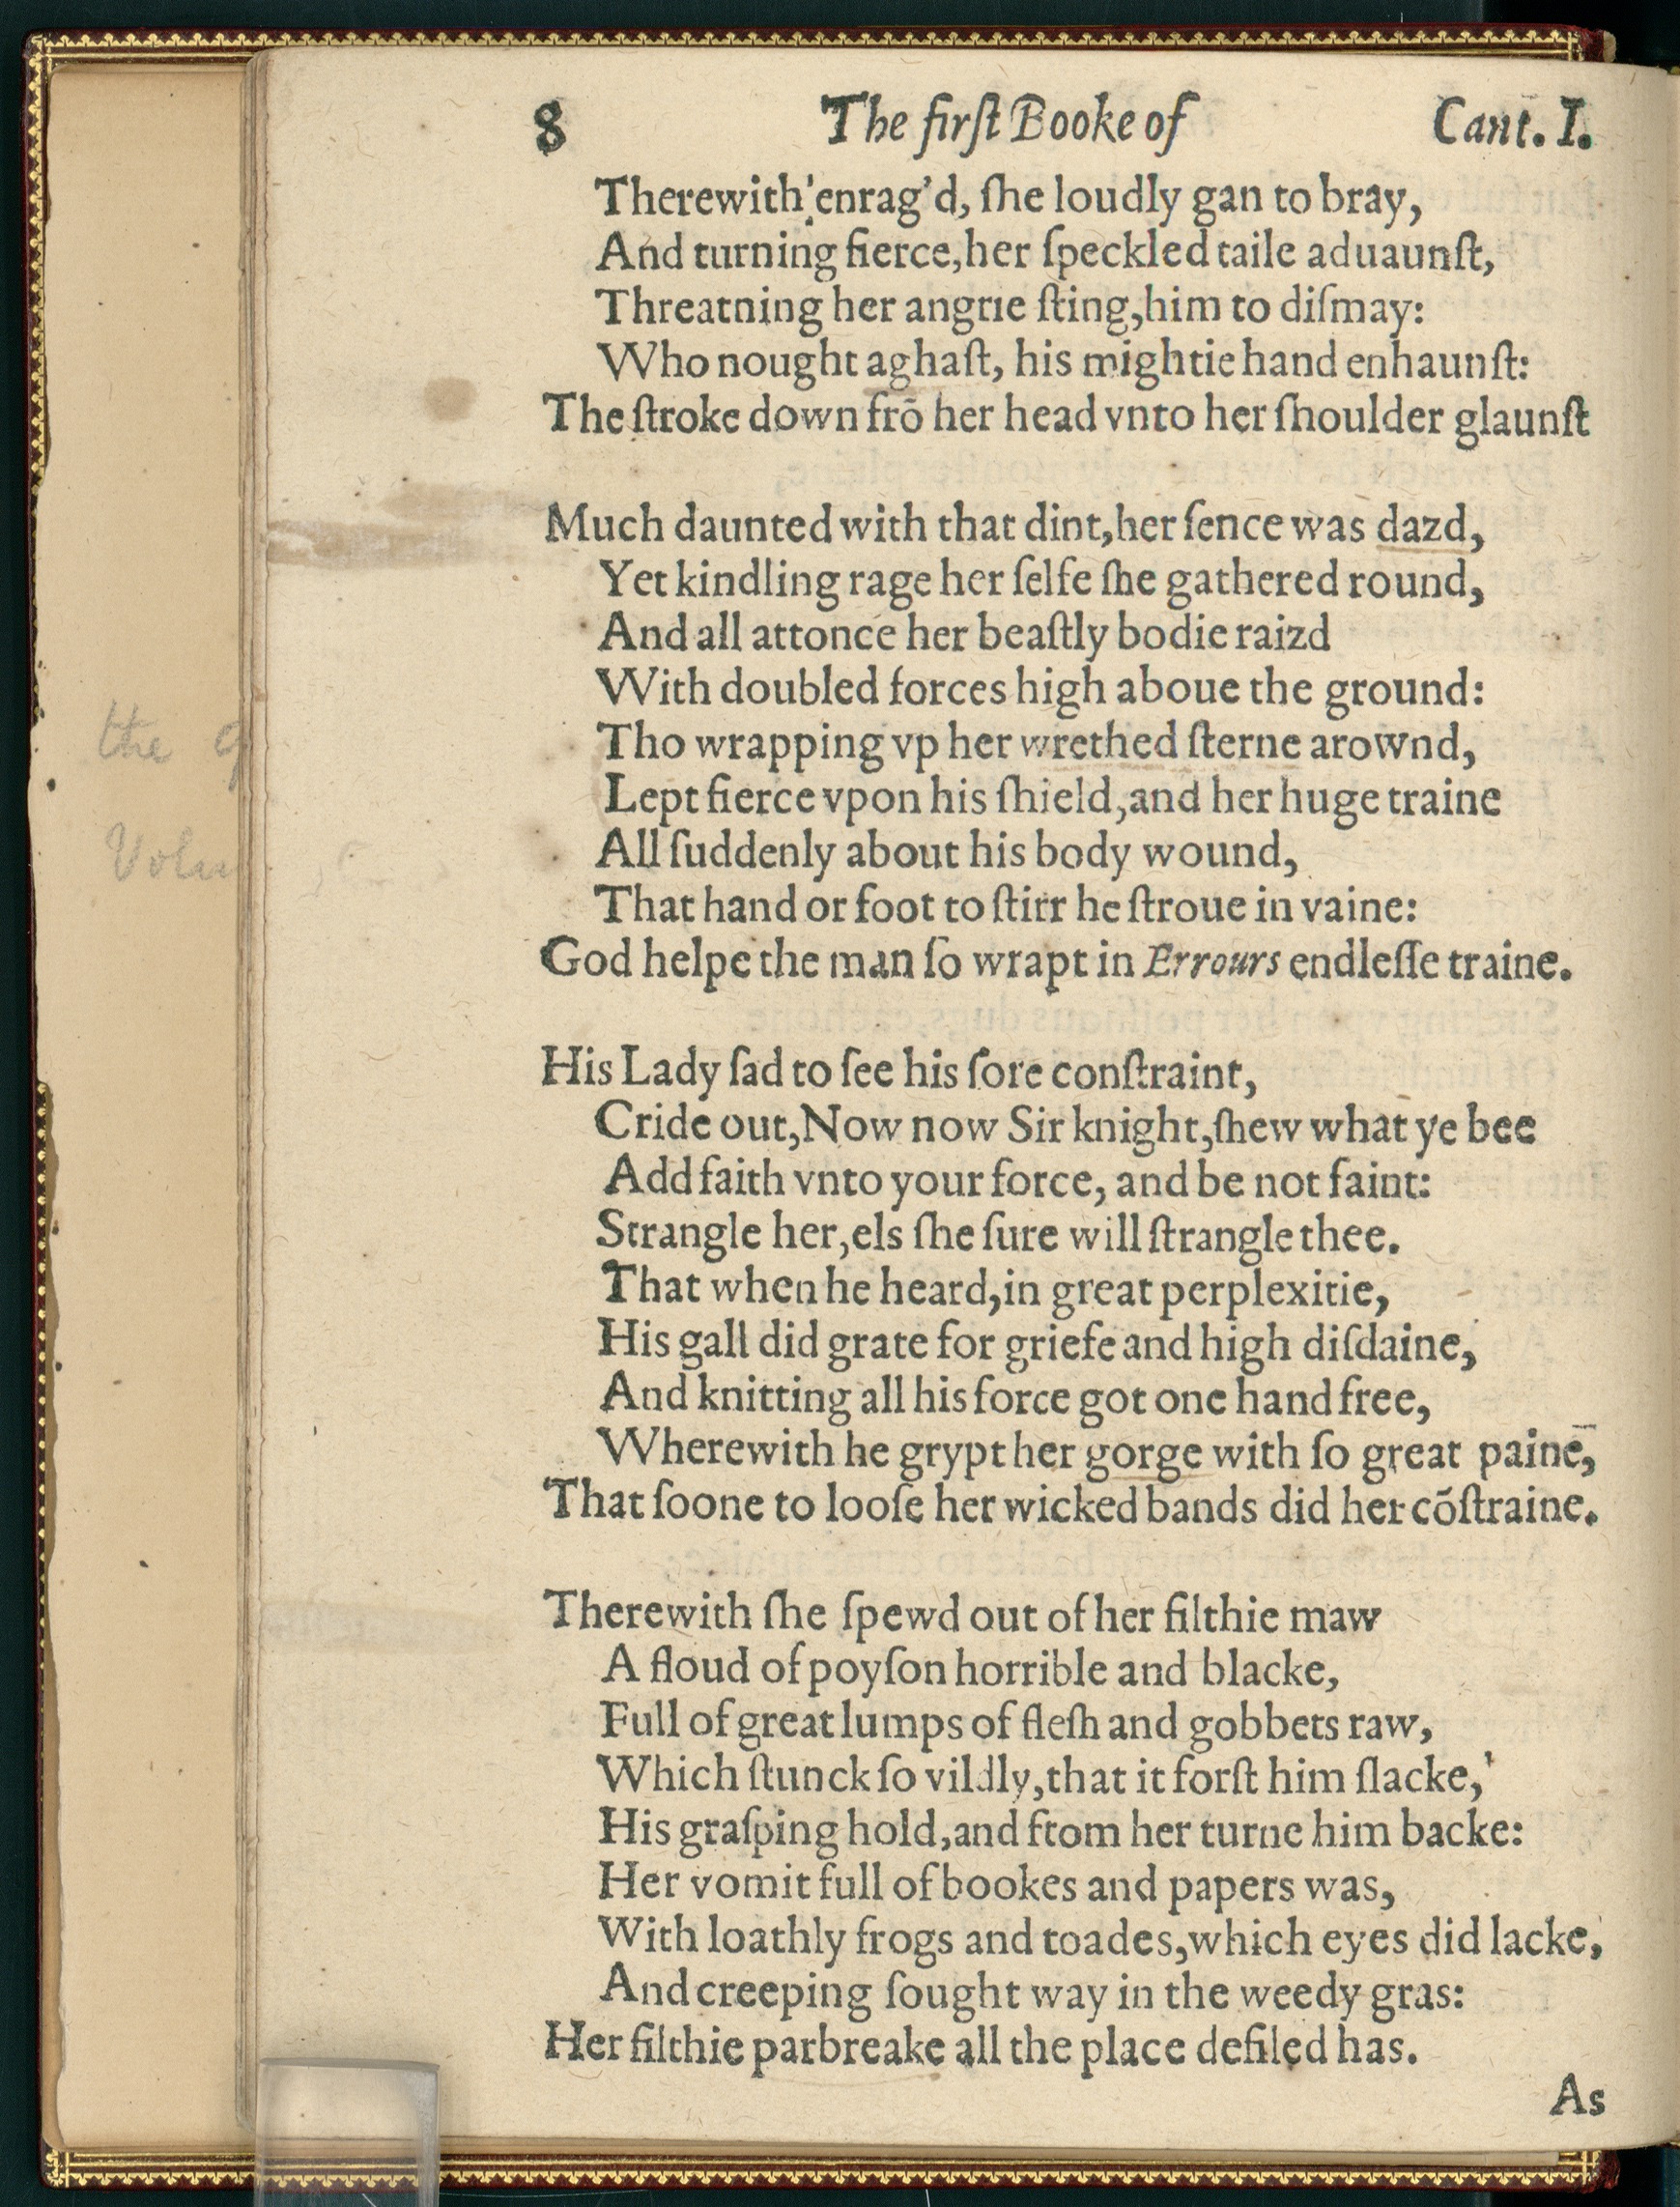 8 The firſt Booke of Cant. I.
Therewith'enrag'd, ſhe loudly gan to bray,
And turning fierce, her ſpeckled taile aduaunſt,
Threatning her angrie ſting, him to diſmay:
Who nought aghaſt, his mightie hand enhaunſt:
The ſtroke down frõ her head vnto her ſhoulder glaunſt
Much daunted with that dint, her ſence was dazd,
Yet kindling rage her ſelfe ſhe gathered round,
And all attonce her beaſtly bodie raizd
With doubled forces high aboue the ground:
Tho wrapping vp her wrethed ſterne arownd,
Lept fierce vpon his ſhield, and her huge traine
All ſuddenly about his body wound,
That hand or foot to ſtirr he ſtroue in vaine:
God helpe the man ſo wrapt in Errours endleſſe traine.
His Lady ſad to ſee his ſore conſtraint,
Cride out, Now now Sir knight, ſhew what ye bee
Add faith vnto your force, and be not faint:
Strangle her, els ſhe ſure will ſtrangle thee.
That when he heard, in great perplexitie,
His gall did grate for griefe and high diſdaine,
And knitting all his force got one hand free,
Wherewith he grypt her gorge with ſo great paine,
That ſoone to looſe her wicked bands did her cõſtraine.
Therewith ſhe ſpewd out of her filthie maw
A floud of poyſon horrible and blacke,
Full of great lumps of fleſh and gobbets raw,
Which ſtunck ſo vildly, that it forſt him ſlacke,
His graſping hold, and from her turne him backe:
Her vomit full of bookes and papers was,
With loathly frogs and toades, which eyes did lacke,
And creeping ſought way in the weedy gras:
Her filthie parbreake all the place defiled has.
As
the
Volu